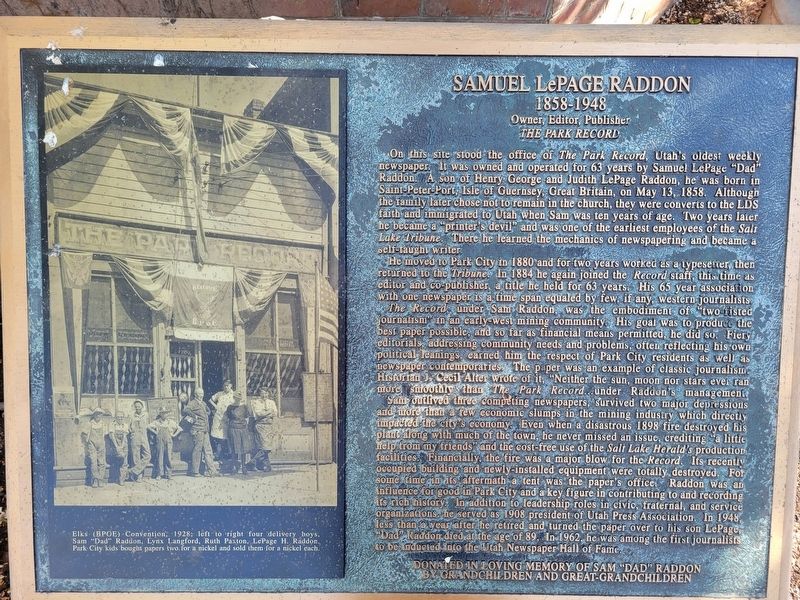 THE PARK RECORD
Elks (BPOE) Convention, 1928; left to right four delivery boys,
Sam "Dad" Raddon, Lynx Langford, Ruth Paxton, LePage H. Raddon.
Park City kids bought papers two for a nickel and sold them for a nickel each.
SAMUEL LePAGE RADDON
1858-1948
Owner, Editor, Publisher
THE PARK RECORD
On this site stood the office of The Park Record, Utah's oldest weekly
newspaper. It was owned and operated for 63 years by Samuel LePage "Dad"
Raddon. A son of Henry George and Judith LePage Raddon, he was born in
Saint-Peter-Port, Isle of Guernsey, Great Britain, on May 13, 1858. Although
the family later chose not to remain in the church, they were converts to the LDS
faith and immigrated to Utah when Sam was ten years of age. Two years later
he became a "printer's devil" and was one of the earliest employees of the Salt
Lake Tribune. There he learned the mechanics of newspapering and became a
self-taught writer.
He moved to Park City in 1880 and for two years worked as a typesetter, then
returned to the Tribune. In 1884 he again joined the Record staff, this time as
editor and co-publisher, a title he held for 63 years. His 65 year association
with one newspaper is a time span equaled by few, if any, western journalists.
The Record, under Sam Raddon, was the embodiment of "two fisted
journalism" in an early-west mining community. His goal was to produce the
best paper possible, and so far as financial means permitted, he did so. Fiery
editorials, addressing community needs and problems, often reflecting his own
political leanings, earned him the respect of Park City residents as well as
newspaper contemporaries. The paper was an example of classic journalism.
Historian J. Cecil Alter wrote of it, "Neither the sun, moon nor stars ever ran
more smoothly than The Park Record under Raddon's management.
Sam outlived three competing newspapers, survived two major depressions
and more than a few economic slumps in the mining industry which directly
impacted the city's economy. Even when a disastrous 1898 fire destroyed his
plant along with much of the town, he never missed an issue, crediting "a little
help from my friends" and the cost-free use of the Salt Lake Herald's production
facilities. Financially, the fire was a major blow for the Record. Its recently
occupied building and newly-installed equipment were totally destroyed. For
some time in its aftermath a tent was the paper's office. Raddon was an
influence for good in Park City and a key figure in contributing to and recording
its rich history. In addition to leadership roles in civic, fraternal, and service
organizations, he served as 1908 president of Utah Press Association. In 1948,
less than a year after he retired and turned the paper over to his son LePage,
"Dad" Raddon died at the age of 89. In 1962, he was among the first journalists
to be inducted into the Utah Newspaper Hall of Fame.
DONATED IN LOVING MEMORY OF SAM "DAD" RADDON
BY GRANDCHILDREN AND GREAT-GRANDCHILDREN